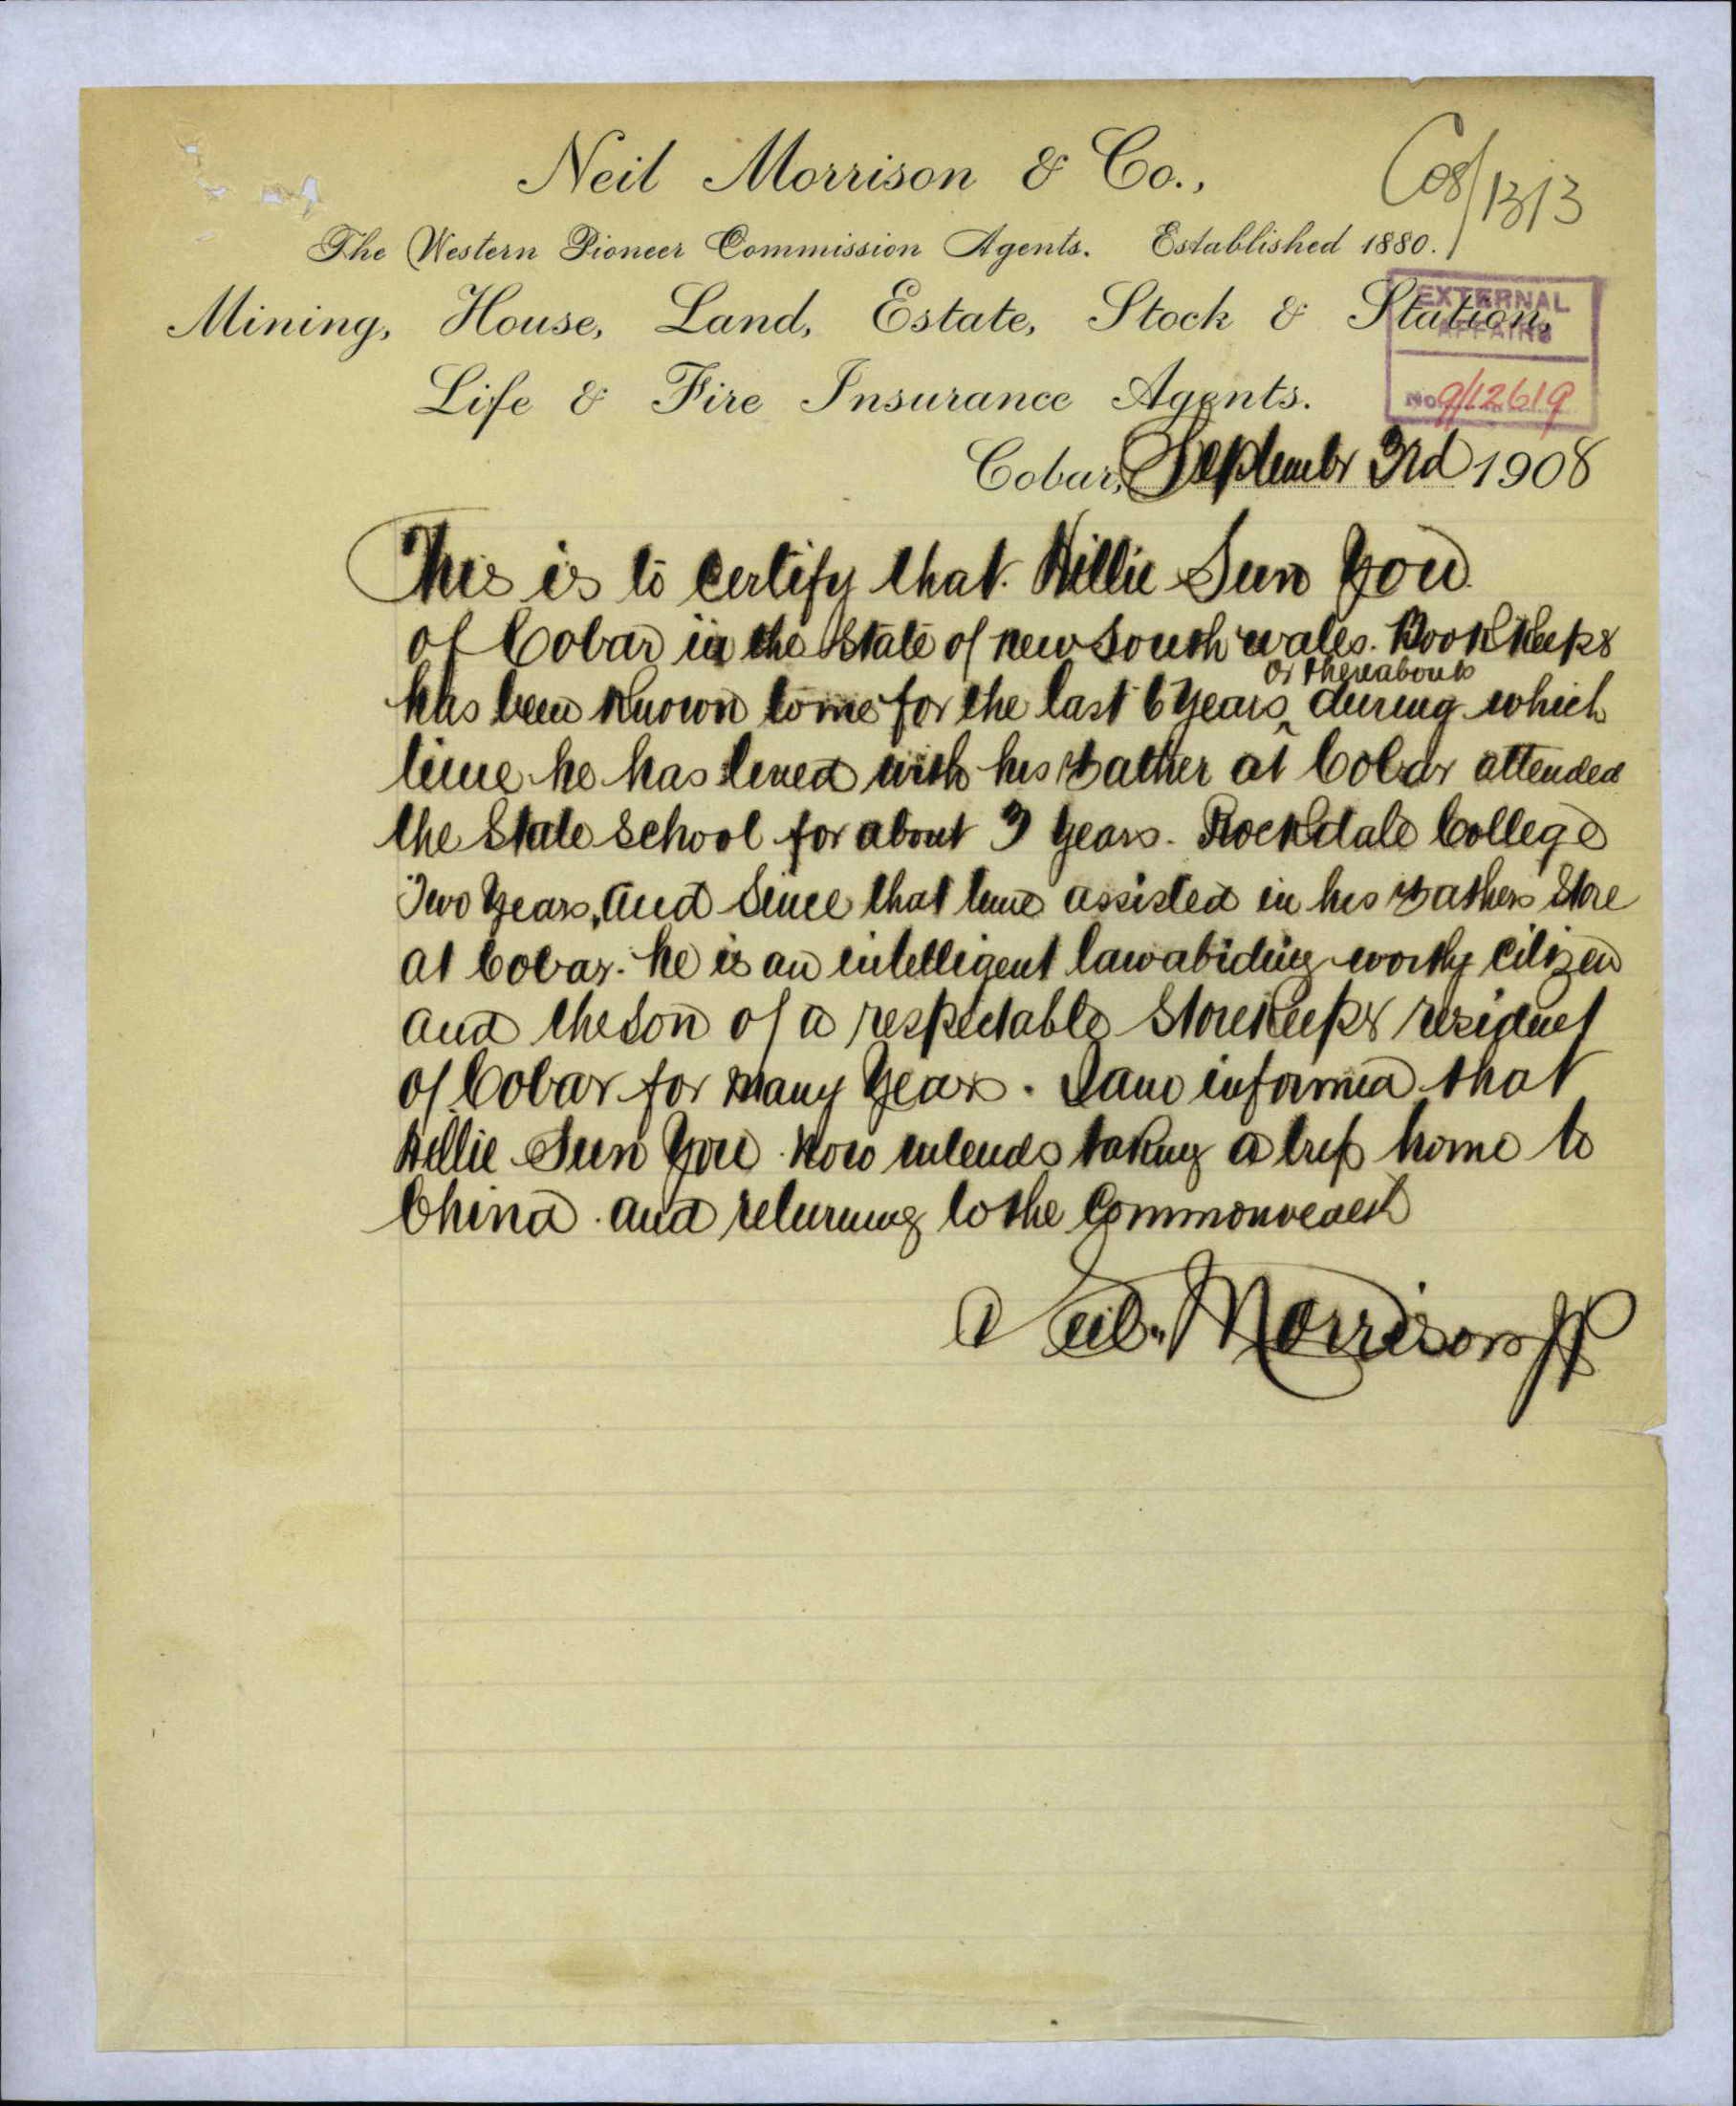 Neil Morrison & Co.,
C08/13/3
The Western Pioneer Commission Agents. Established 1880.
Mining, House, Land, Estate, Stock & Station,
EXTERNAL
AFFAIRS
Life & Fire Insurance Agents.
No 9/12619
Cobar, September 3rd 1908
This is to certify that Willie Sun You
of Cobar in the State of new South wales. Book Keeper
or thereabouts
has been Known to me for the last 6 Years ‸ during which
time he has lived with his Father at Cobar attended
the State School for about 3 years. Rockdale College
Two Years, and Since that time assisted in his Fathers Store
at Cobar. he is an intelligent lawabiding worthy citizen
and the son of a respectable StoreKeeper resident
of Cobar for many Years. I am informed that
Willie Sun You now intends taking a trip home to
China and returning to the Commonwealth
Neil Morrison JP